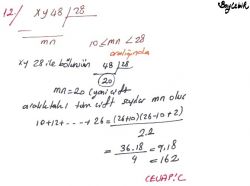 Beylerbik
12/ xy48 | 28
mn
10 ≤ mn < 28
aralığında
xy 28 ile bölünür 48 | 28
20
mn=20 (yani çift
aralıktaki tüm çift sayılar mn olur
10+12+ ---- + 26 = (26+10)(26-10+2) / 2.2
= 36.18 / 4 = 9.18
= 162
CEVAP:C